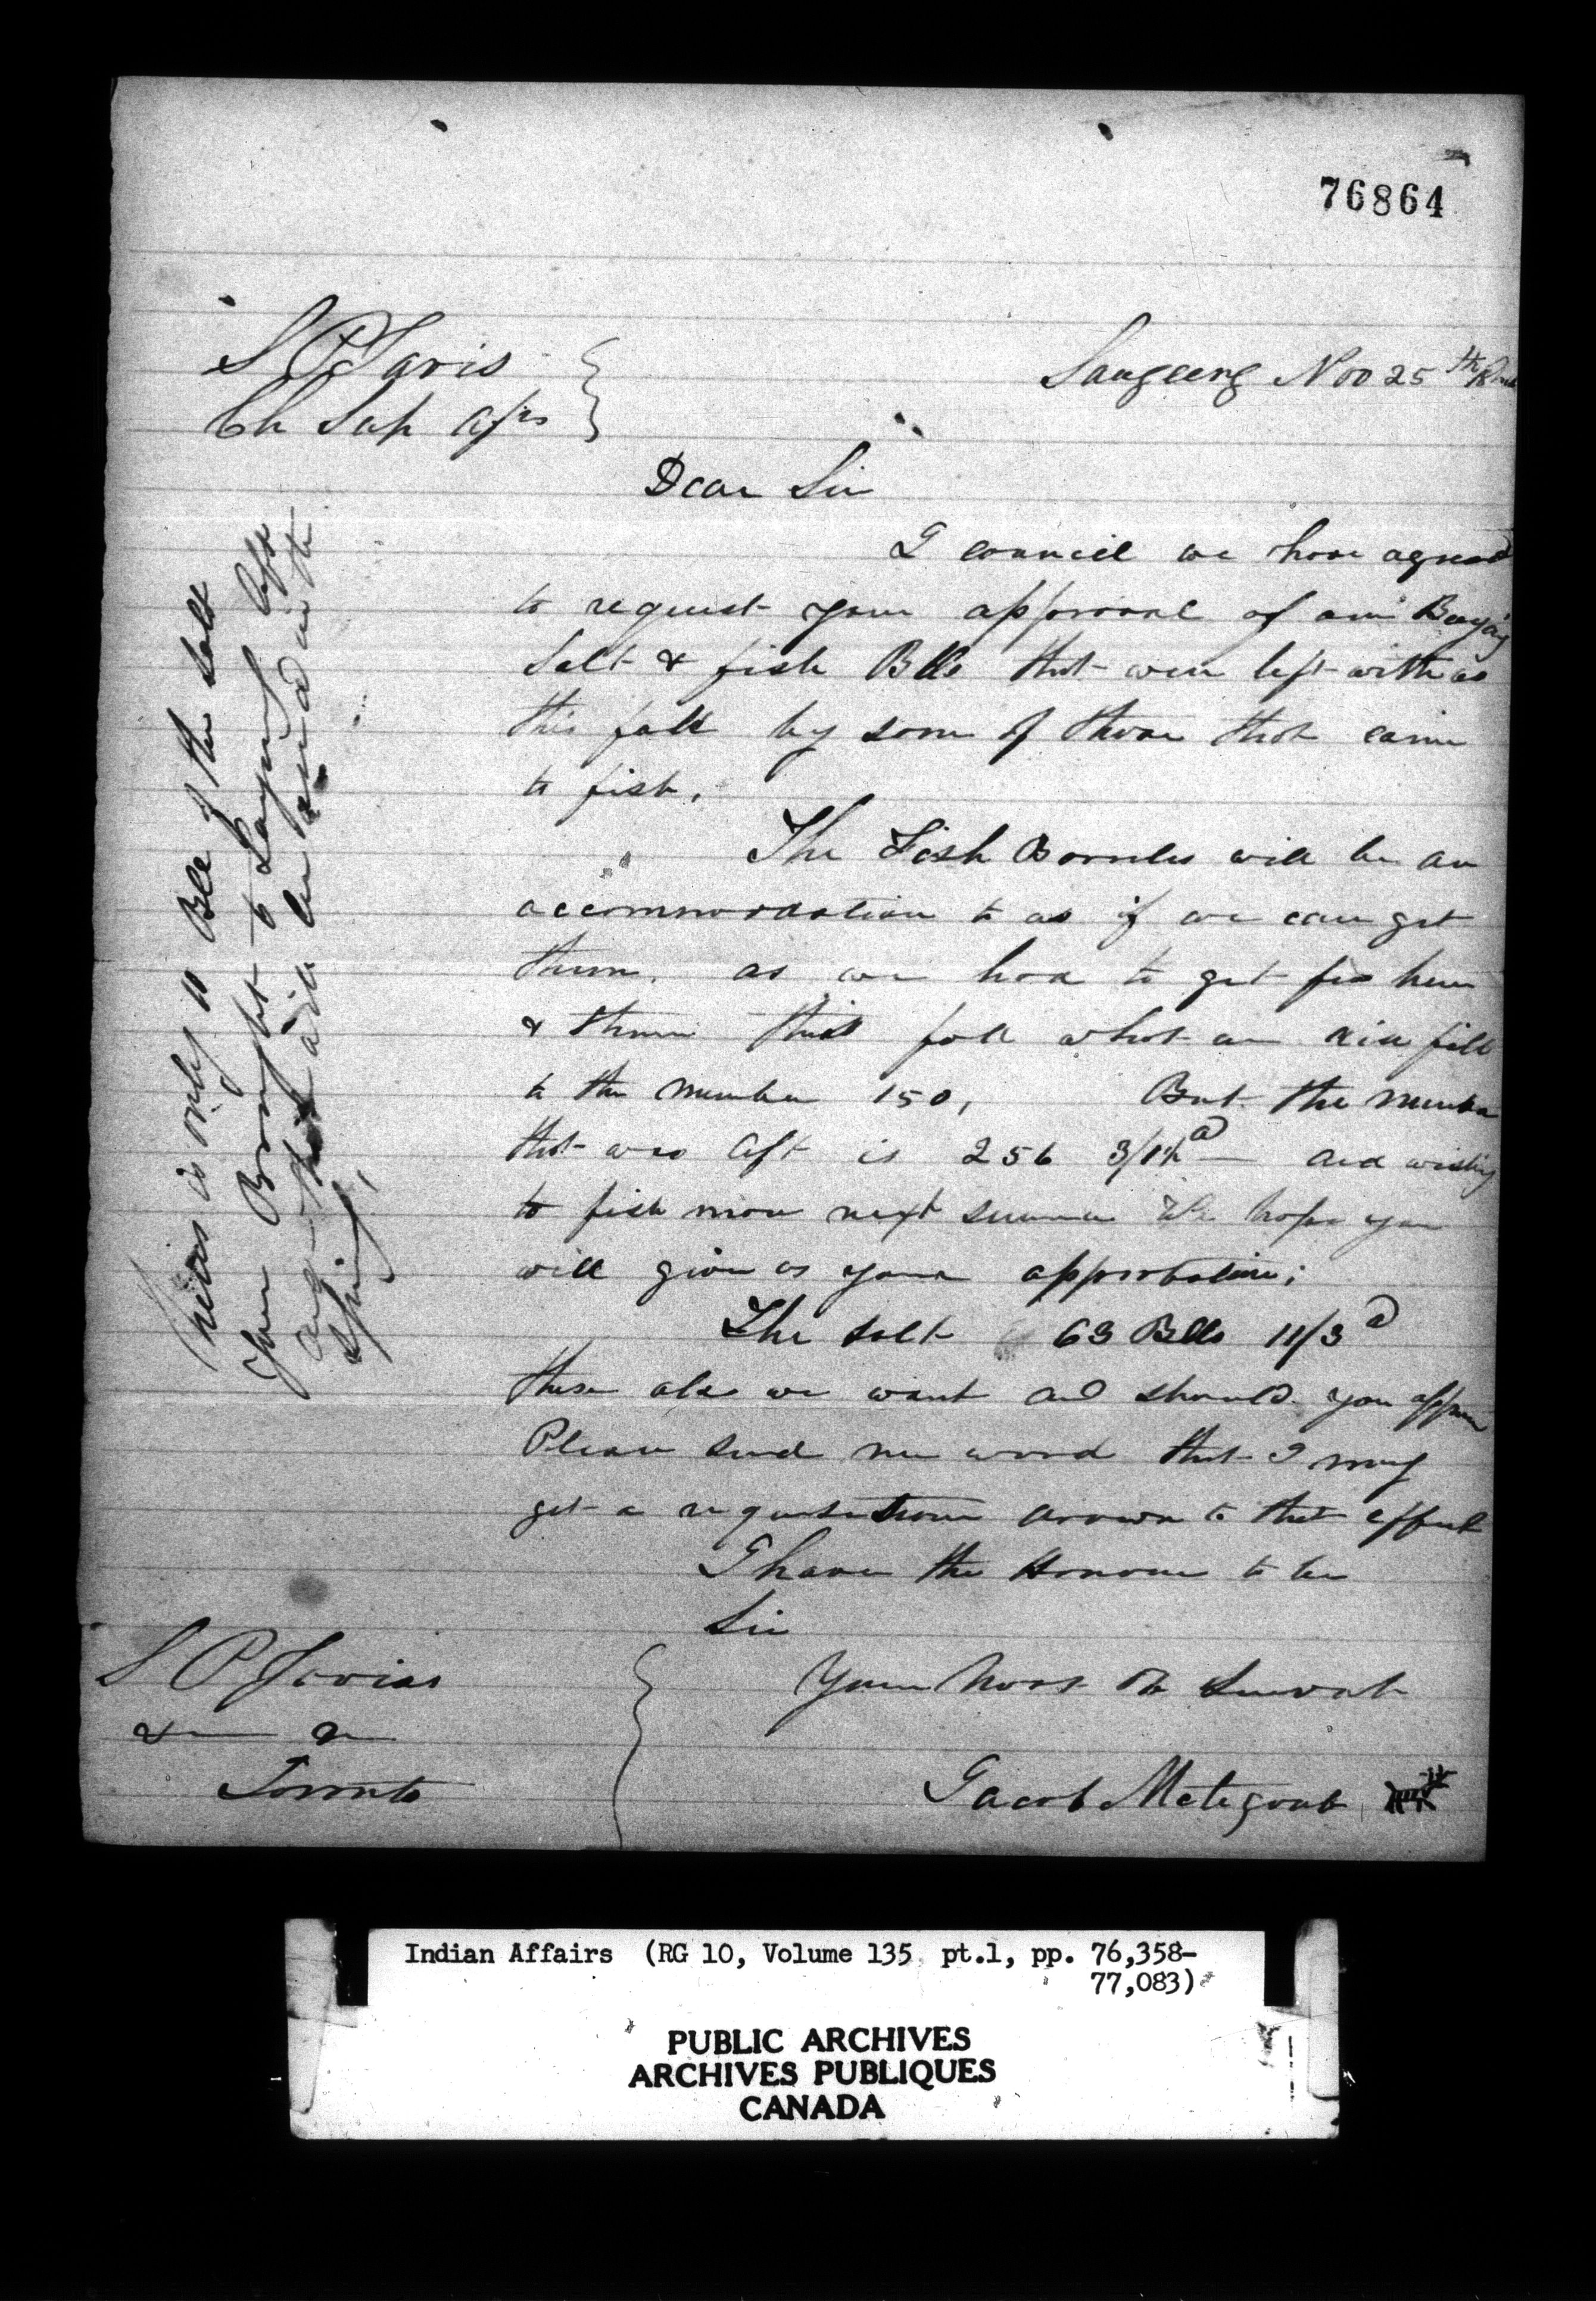 76864
S P Jarvis
Ch Sup Afrs
Saugeeng Nov 25th
Dear Sir
I council we have agreed
to request your approval of our Buying
Salt & fish Blls that were left with us
this fall by some of those that came
to fish,
The Fish Barreles will be an
accommodation to us if we can get
them, as we had to get few here
& there this fall what we did fill
to the number 150, But the number
that was left is 256 3/1½d and wishing
to fish more next summer We hope you
will give us your approbation;
The salt 63 Blls 11/3d
these also we want and should you approve
Please send me word that I may
get a requisition drawn to that effect
I have the Honour to be
Sir
Your Most Ob Servant
Jacob Metegoub
S P Jarvis
Toronto
There is only 10 Bll of the salt
your Brought to Saugeeng left
and that will be used in the
Spring,
Indian Affairs (RG 10, Volume 135 pt.1, pp. 76,358-
77,083)
PUBLIC ARCHIVES
ARCHIVES PUBLIQUES
CANADA